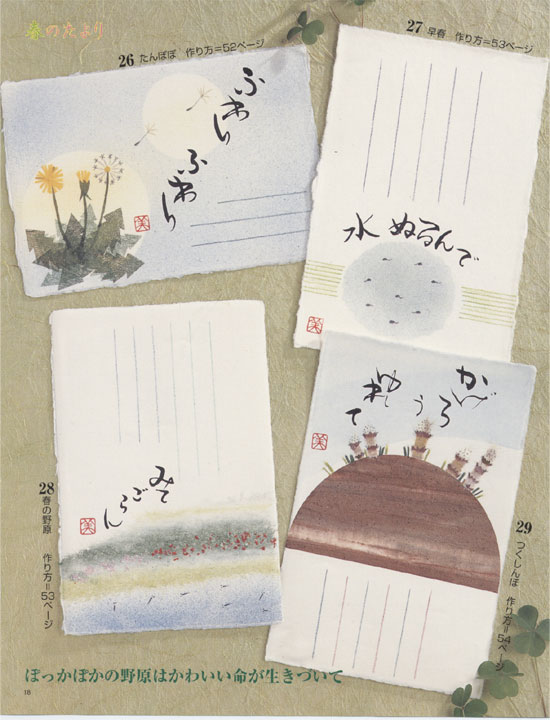 春のたより
26 たんぽぽ 作り方=52ページ
27 早春 作り方=53ページ
ふわり
ふわり
美
水ぬるんで
美
28 春の野原 作り方=53ページ
みて
ごらん
美
かげろう
ゆれて
美
29 つくしんぼ 作り方=54ページ
ぽっかぽかの野原はかわいい命が生きづいて
18